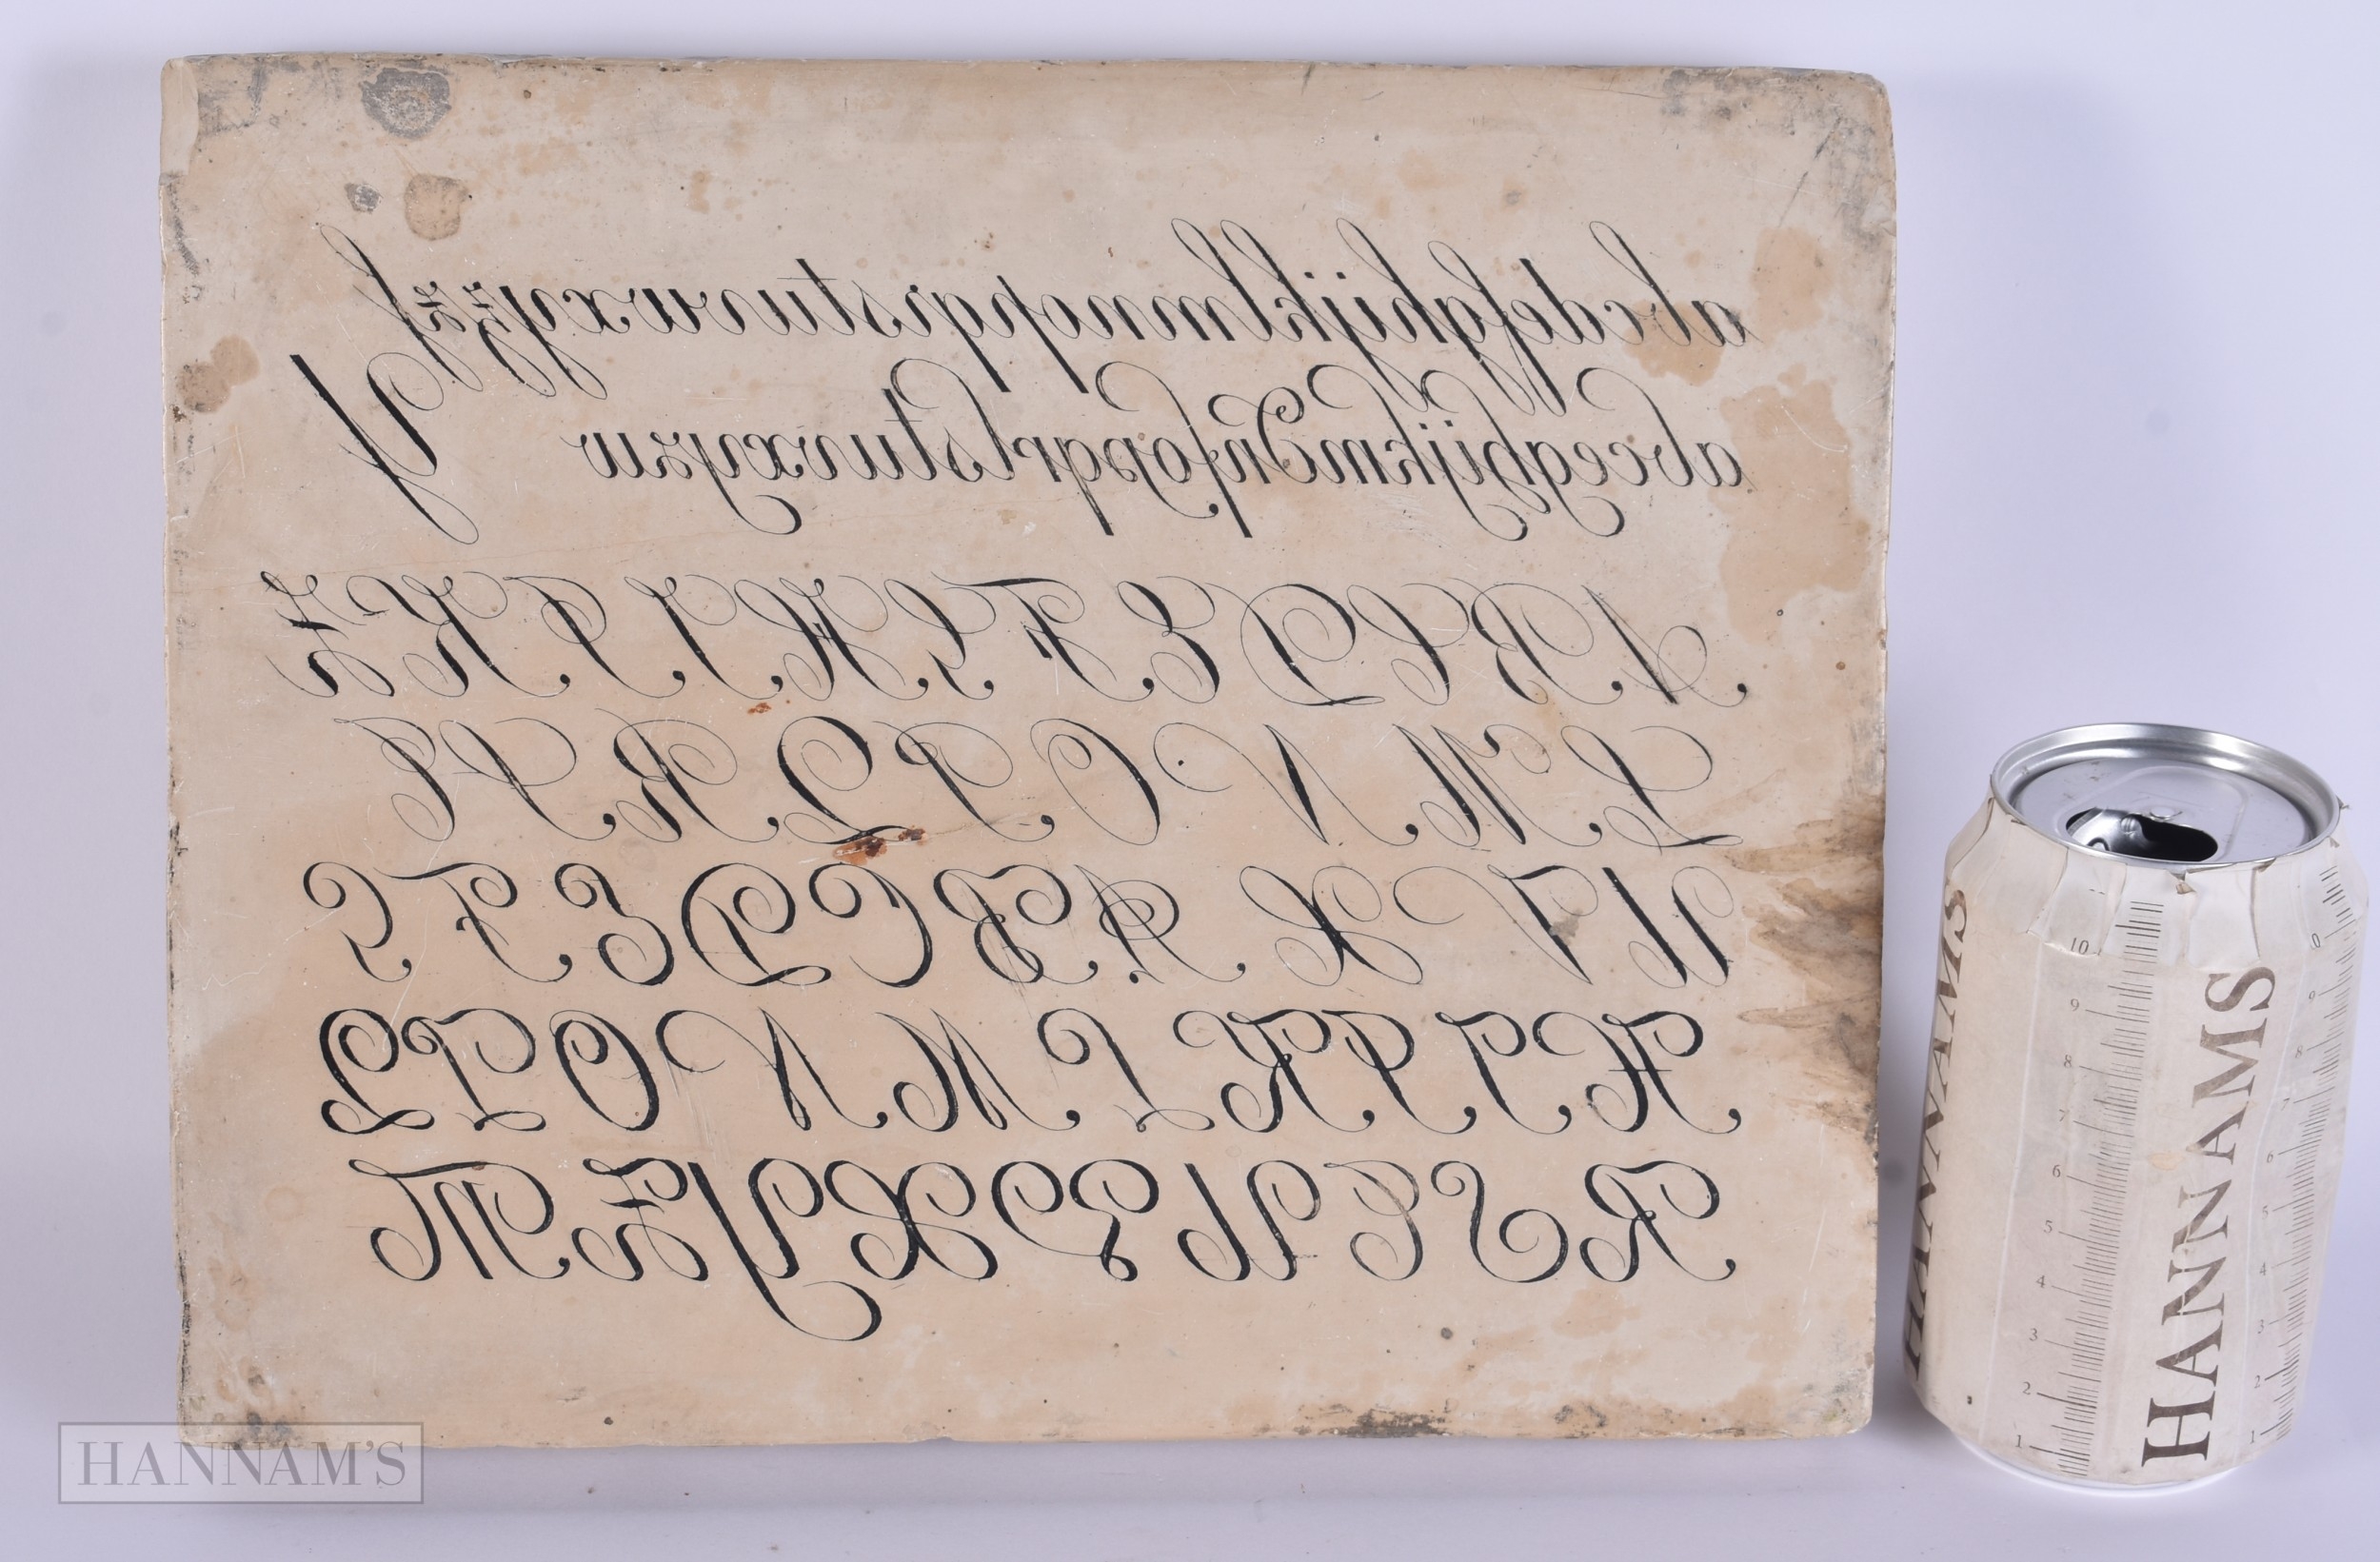 abcdefghijklmnopqrstuvwxyzz
Y
A B C D E F G H I J K Z
L M N O P Q R S T
U V X A B C D E F G
H I J K L M N O P Q
R S T U X Y Z M
HANNAMS
10
9
8
7
6
5
4
3
2
1
HANNAMS
0
9
8
7
6
5
4
3
2
1
HANNAM'S